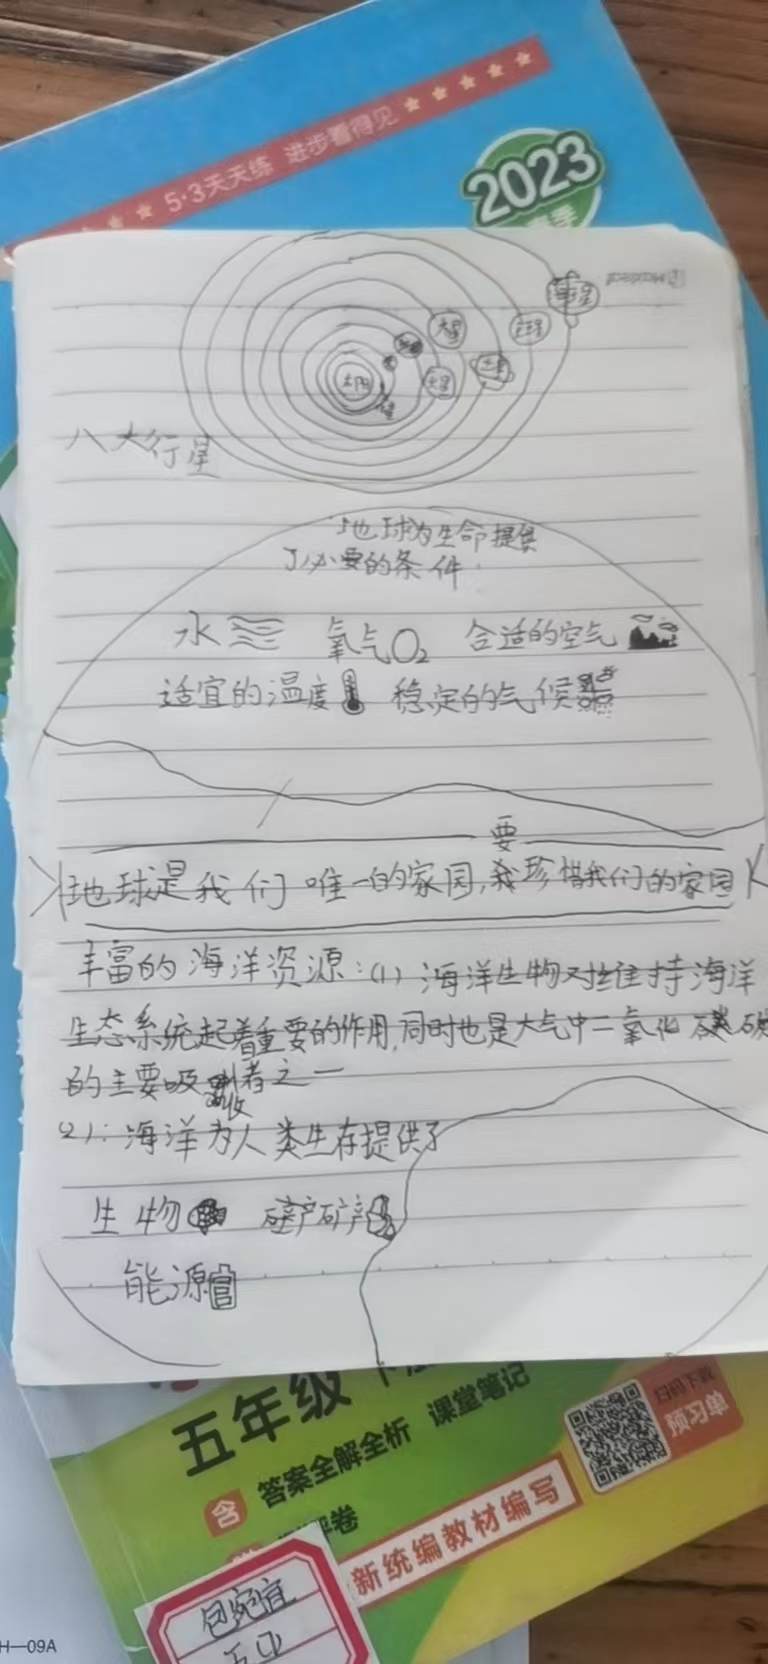 5·3天天练 进步看得见
2023
太阳
火星
木星
土星
天王星
海王星
八大行星
地球为生命提供
了必要的条件
水 氧气O₂ 合适的空气
适宜的温度 稳定的气候
要
地球是我们唯一的家园,我珍惜我们的家园
丰富的海洋资源:(1) 海洋生物对维持海洋
生态系统起着重要的作用,同时也是大气中二氧化碳
的主要吸收者之一
(2):海洋为人类生存提供了
生物 矿产
能源
五年级 下
含 答案全解全析 课堂笔记
扫码下载
预习单
卷
新统编教材编写
包宛宜
H—09A